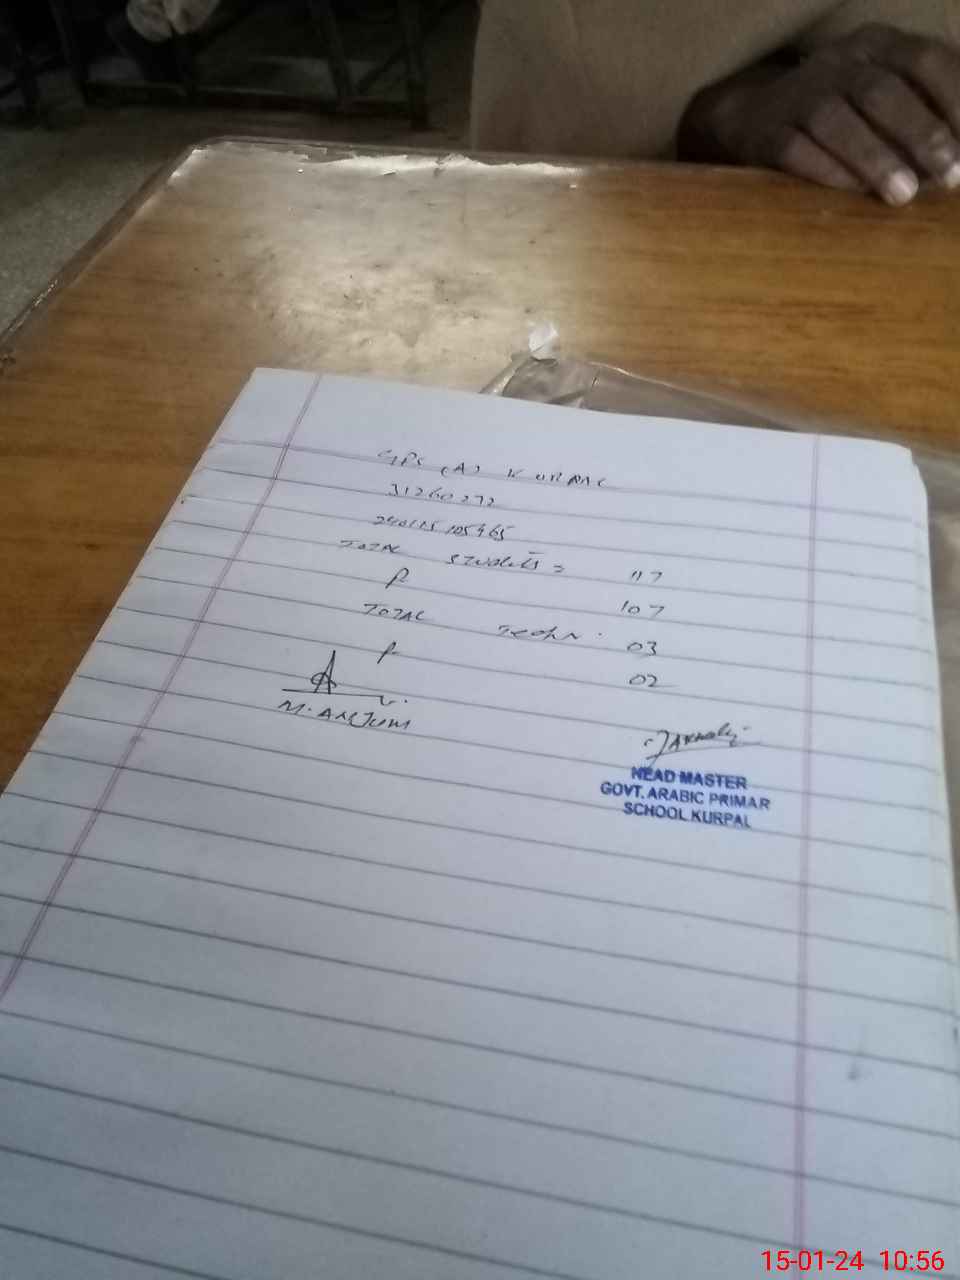 GPS (A) KURPAL
31260272
240115105465
TOTAL students = 117
P 107
TOTAL Techr. 03
P 02
M. ANJUM
HEAD MASTER
GOVT. ARABIC PRIMAR
SCHOOL KURPAL
15-01-24 10:56